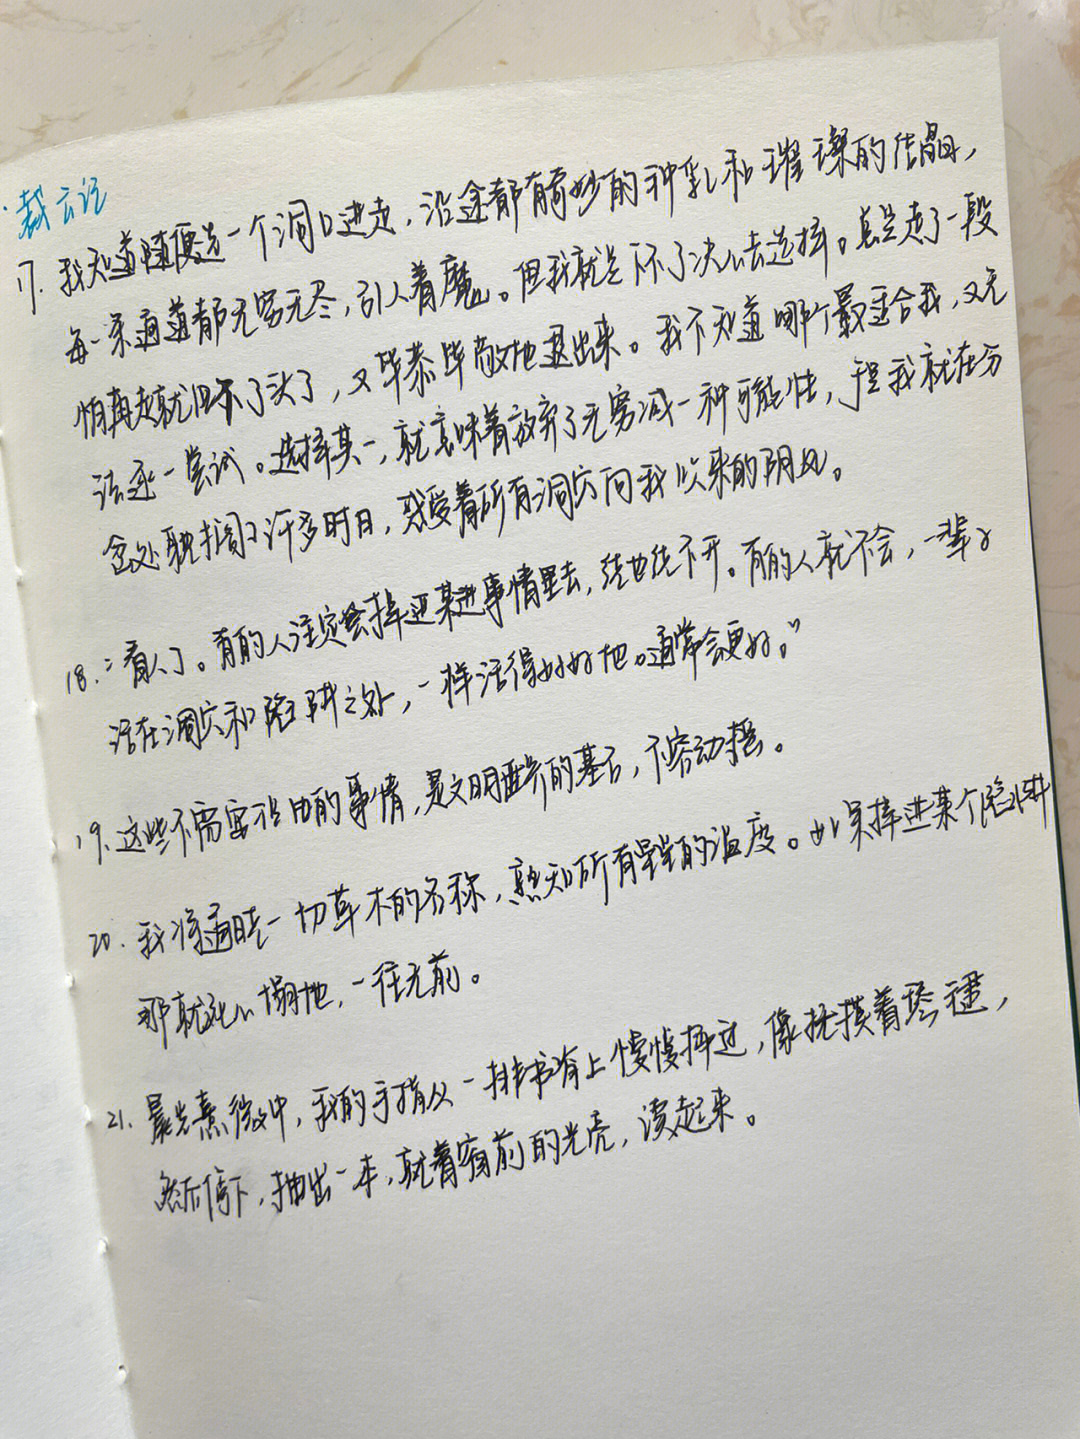 裁云记
17. 我知道随便选一个洞口进走，沿途都有奇妙的钟乳和璀璨的结晶，
每一条通道都无穷无尽，引人着魔。但我就是下不了决心去选择。总是走了一段
怕再走就回不了头了，又毕恭毕敬地退出来。我不知道哪个最适合我，又无
法逐一尝试。选择其一，就意味着放弃了无穷减一种可能性，于是我就在分
岔处耽搁了许多时日，忍受着所有洞穴向我吹来的阴风。
18.“看人了。有的人注定会掉进某进事情里去，绕也绕不开。有的人就不会，一辈子
活在洞穴和陷阱之外，一样活得好好地。通常会更好。”
19. 这些不需要理由的事情，是文明世界的基石，不容动摇。
20. 我将通晓一切草木的名称，熟知所有星星的温度。如果掉进某个陷阱
那就死心塌地，一往无前。
21. 晨光熹微中，我的手指从一排书脊上慢慢掠过，像抚摸着琴键，
然后停下，抽出一本，就着窗前的光亮，读起来。